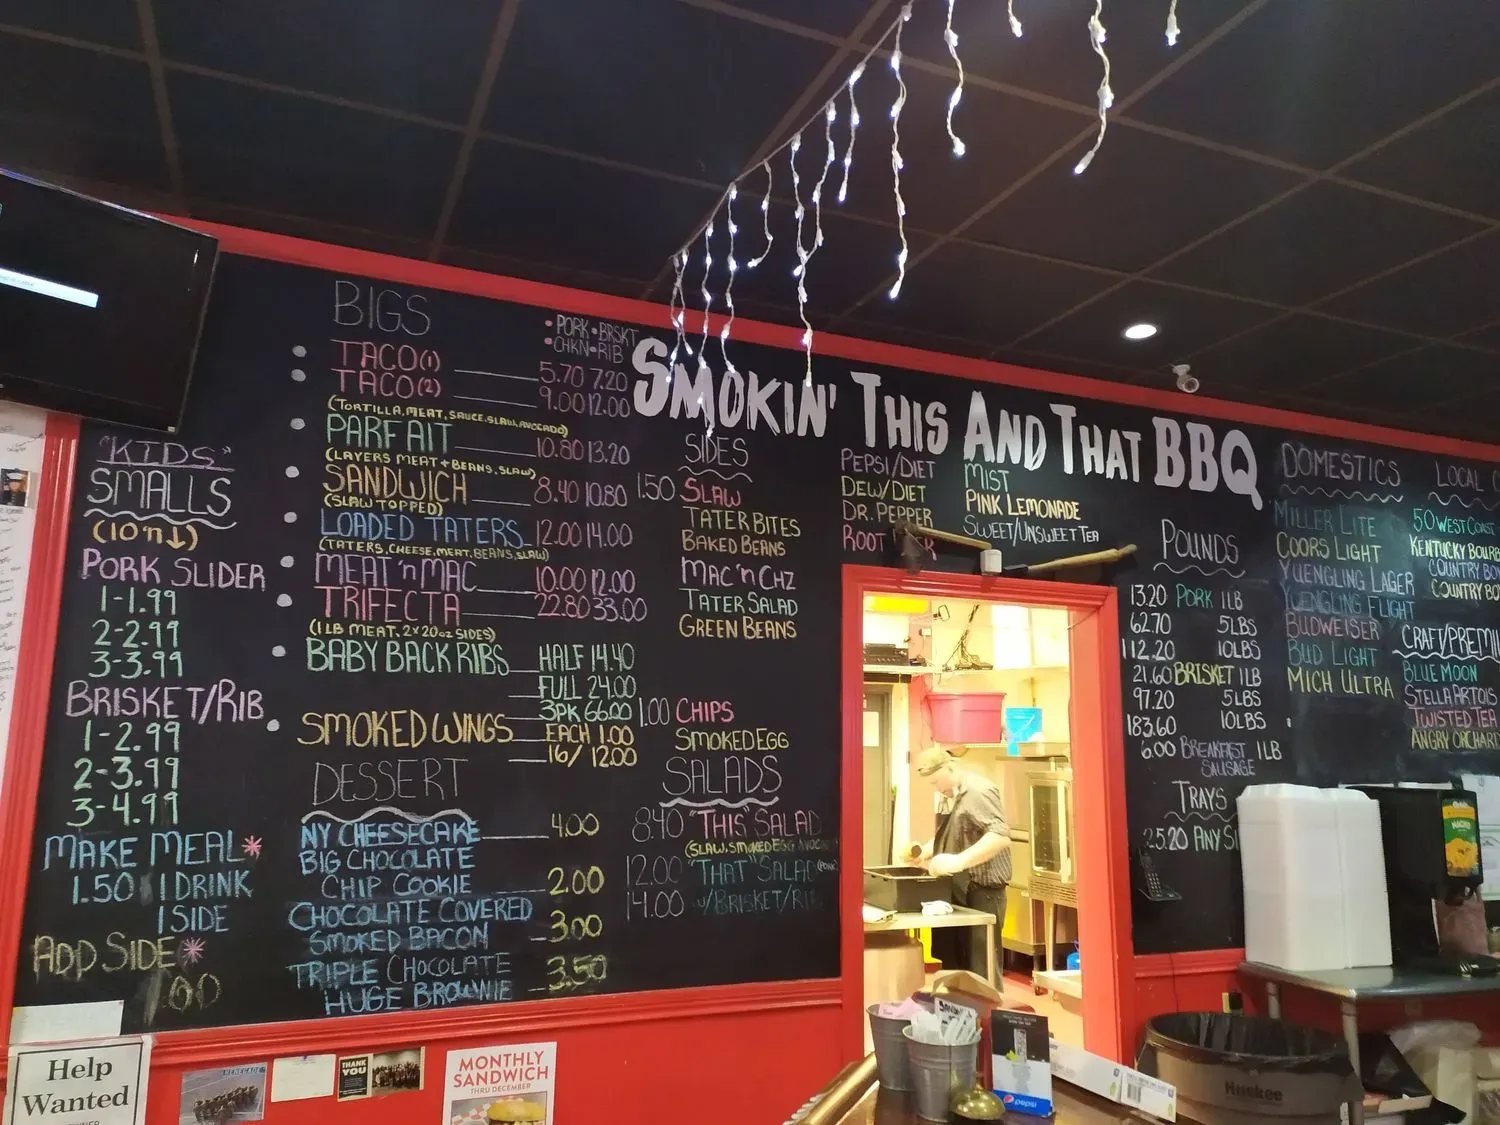 SMOKIN' THIS AND THAT BBQ
"KIDS"
SMALLS
(10 n ↓)
PORK SLIDER
1-1.99
2-2.99
3-3.99
BRISKET/RIB
1-2.99
2-3.99
3-4.99
MAKE MEAL*
1.50 1 DRINK
1 SIDE
ADD SIDE*
BIGS
• PORK • BRSKT
• CHKN • RIB
TACO (1) 5.70 7.20
TACO (2) 9.00 12.00
(TORTILLA, MEAT, SAUCE, SLAW, AVOCADO)
PARFAIT 10.80 13.20
(LAYERS MEAT + BEANS, SLAW)
SANDWICH 8.40 10.80
(SLAW TOPPED)
LOADED TATERS 12.00 14.00
(TATERS, CHEESE, MEAT, BEANS, SLAW)
MEAT 'n MAC 10.00 12.00
TRIFECTA 22.80 33.00
(1 LB MEAT, 2 x 20oz SIDES)
BABY BACK RIBS HALF 14.40
FULL 24.00
3PK 66.00
SMOKED WINGS EACH 1.00
16/ 12.00
DESSERT
NY CHEESECAKE 4.00
BIG CHOCOLATE
CHIP COOKIE 2.00
CHOCOLATE COVERED
SMOKED BACON 3.00
TRIPLE CHOCOLATE
HUGE BROWNIE 3.50
SIDES
1.50 SLAW
TATER BITES
BAKED BEANS
MAC 'n CHZ
TATER SALAD
GREEN BEANS
1.00 CHIPS
SMOKED EGG
SALADS
8.40 "THIS" SALAD
(SLAW, SMOKED EGG
12.00 "THAT" SALAD
14.00 w/BRISKET/RIB
PEPSI/DIET
DEW/DIET
DR. PEPPER
ROOT
MIST
PINK LEMONADE
SWEET/UNSWEET TEA
POUNDS
13.20 PORK 1LB
62.70 5LBS
112.20 10LBS
21.60 BRISKET 1LB
97.20 5LBS
183.60 10LBS
6.00 BREAKFAST 1LB
SAUSAGE
TRAYS
25.20 ANY
DOMESTICS
MILLER LITE
COORS LIGHT
YUENGLING LAGER
YUENGLING FLIGHT
BUDWEISER
BUD LIGHT
MICH ULTRA
LOCAL
50 WEST COAST
KENTUCKY
COUNTRY
COUNTRY
CRAFT/
BLUE MOON
STELLA ARTOIS
TWISTED TEA
ANGRY
Help
Wanted
THANK
YOU
MONTHLY
SANDWICH
THRU DECEMBER
pepsi
Huskee